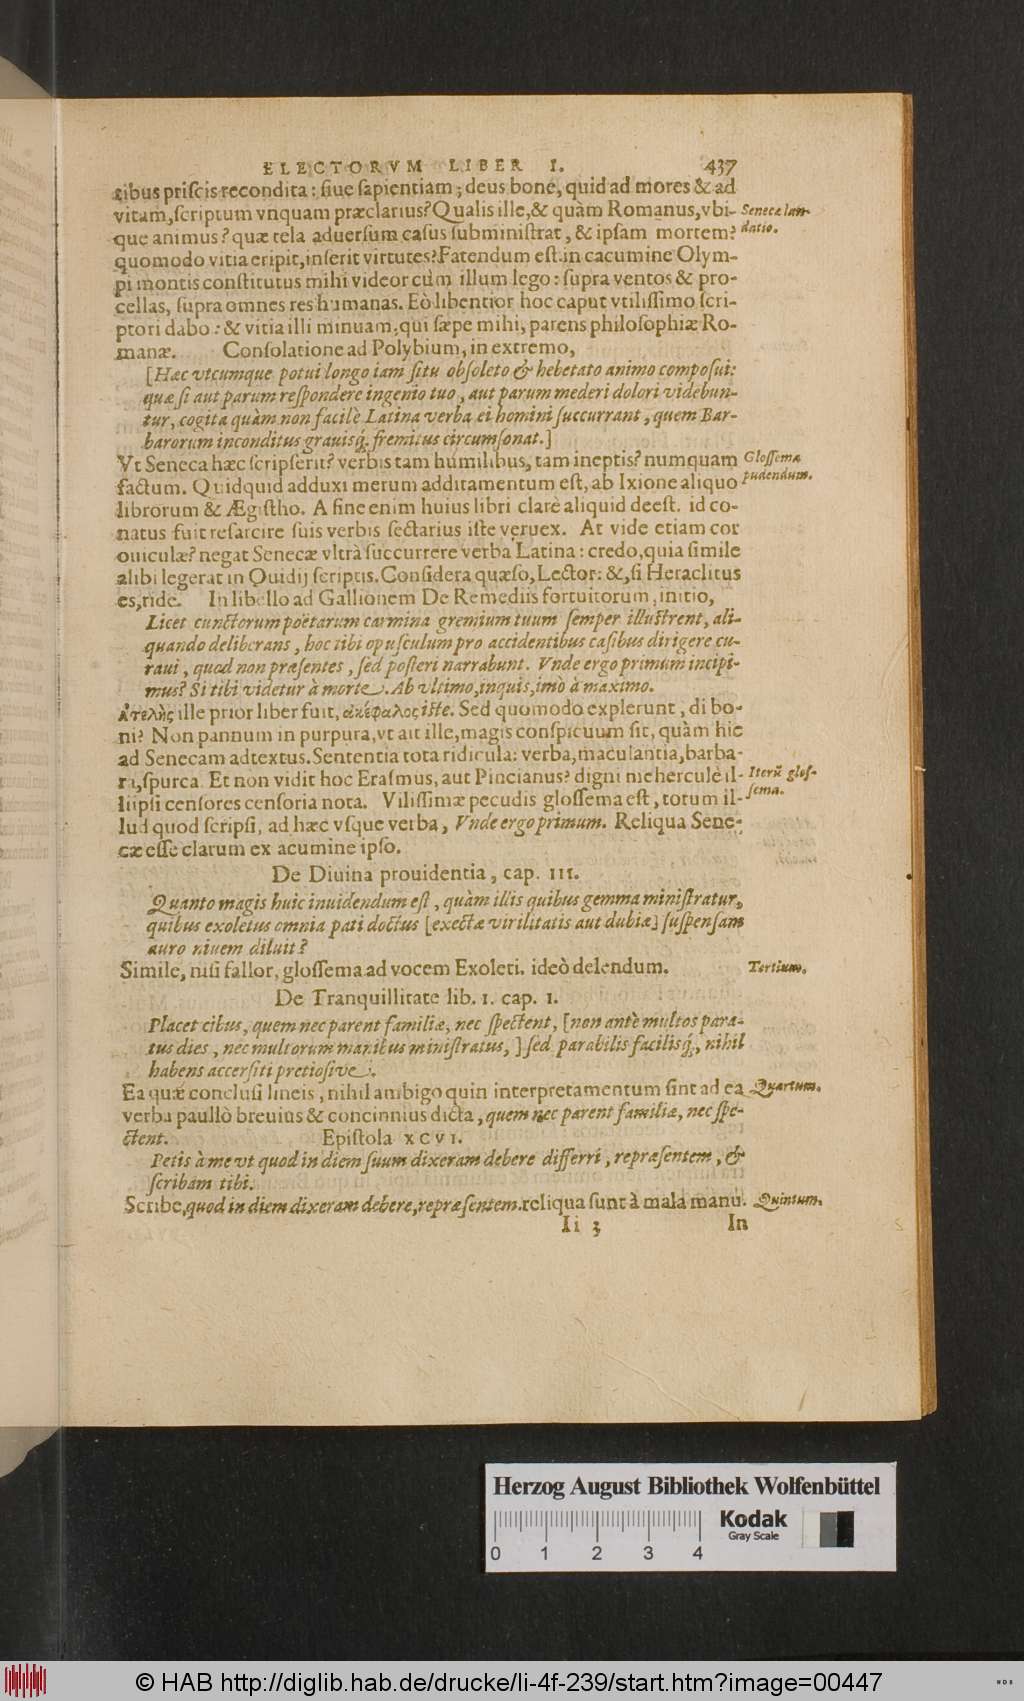 ELECTORVM LIBER I. 437
tibus priscis recondita: siue sapientiam; deus bone, quid ad mores & ad
vitam, scriptum vnquam præclarius? Qualis ille, & quàm Romanus, vbi-
Senecæ lau-
que animus? quæ tela aduersum casus subministrat, & ipsam mortem?
datio.
quomodo vitia eripit, inserit virtutes? Fatendum est. in cacumine Olym-
pi montis constitutus mihi videor cùm illum lego: supra ventos & pro-
cellas, supra omnes res humanas. Eò libentior hoc caput vtilissimo scri-
ptori dabo: & vitia illi minuam, qui sæpe mihi, parens philosophiæ Ro-
manæ. Consolatione ad Polybium, in extremo,
[Hæc vtcumque potui longo iam situ obsoleto & hebetato animo composui:
quæ si aut parum respondere ingenio tuo, aut parum mederi dolori videbun-
tur, cogita quàm non facilè Latina verba ei homini succurrant, quem Bar-
barorum inconditus grauisq́; fremitus circumsonat.]
Vt Seneca hæc scripserit? verbis tam humilibus, tam ineptis? numquam
Glossema
factum. Quidquid adduxi merum additamentum est, ab Ixione aliquo
pudendum.
librorum & Ægistho. A fine enim huius libri clarè aliquid deest. id co-
natus fuit resarcire suis verbis sectarius iste veruex. At vide etiam cor
ouiculæ? negat Senecæ vltrà succurrere verba Latina: credo, quia simile
alibi legerat in Ouidij scriptis. Considera quæso, Lector: &, si Heraclitus
es, ride. In libello ad Gallionem De Remediis fortuitorum, initio,
Licet cunctorum poëtarum carmina gremium tuum semper illustrent, ali-
quando deliberans, hoc tibi opusculum pro accidentibus casibus dirigere cu-
raui, quod non præsentes, sed posteri narrabunt. Vnde ergo primum incipi-
mus? Si tibi videtur à morte. Ab vltimo, inquis, imò à maximo.
Ἀτελὴς ille prior liber fuit, ἀκέφαλος iste. Sed quomodo explerunt, di bo-
ni? Non pannum in purpura, vt ait ille, magis conspicuum sit, quàm hic
ad Senecam adtextus. Sententia tota ridicula: verba, maculantia, barba-
ra, spurca. Et non vidit hoc Erasmus, aut Pincianus? digni mehercule il-
Iterũ glos-
li ipsi censores censoria nota. Vilissimæ pecudis glossema est, totum il-
sema.
lud quod scripsi, ad hæc vsque verba, Vnde ergo primum. Reliqua Sene-
cæ esse clarum ex acumine ipso.
De Diuina prouidentia, cap. III.
Quanto magis huic inuidendum est, quàm illis quibus gemma ministratur,
quibus exoletus omnia pati doctus [exectæ virilitatis aut dubiæ] suspensam
auro niuem diluit?
Simile, nisi fallor, glossema ad vocem Exoleti. ideò delendum.
Tertium.
De Tranquillitate lib. I. cap. I.
Placet cibus, quem nec parent familiæ, nec spectent, [non antè multos para-
tus dies, nec multorum manibus ministratus,] sed parabilis facilisq́;, nihil
habens accersiti pretiosive.
Ea quæ conclusi lineis, nihil ambigo quin interpretamentum sint ad ea
Quartum.
verba paullò breuius & concinnius dicta, quem nec parent familiæ, nec spe-
ctent. Epistola XCVI.
Petis à me vt quod in diem suum dixeram debere differri, repræsentem, &
scribam tibi.
Scribe, quod in diem dixeram debere, repræsentem. reliqua sunt à mala manu.
Quintum.
Ii 3 In
Herzog August Bibliothek Wolfenbüttel
Kodak
Gray Scale
0 1 2 3 4
© HAB http://diglib.hab.de/drucke/li-4f-239/start.htm?image=00447